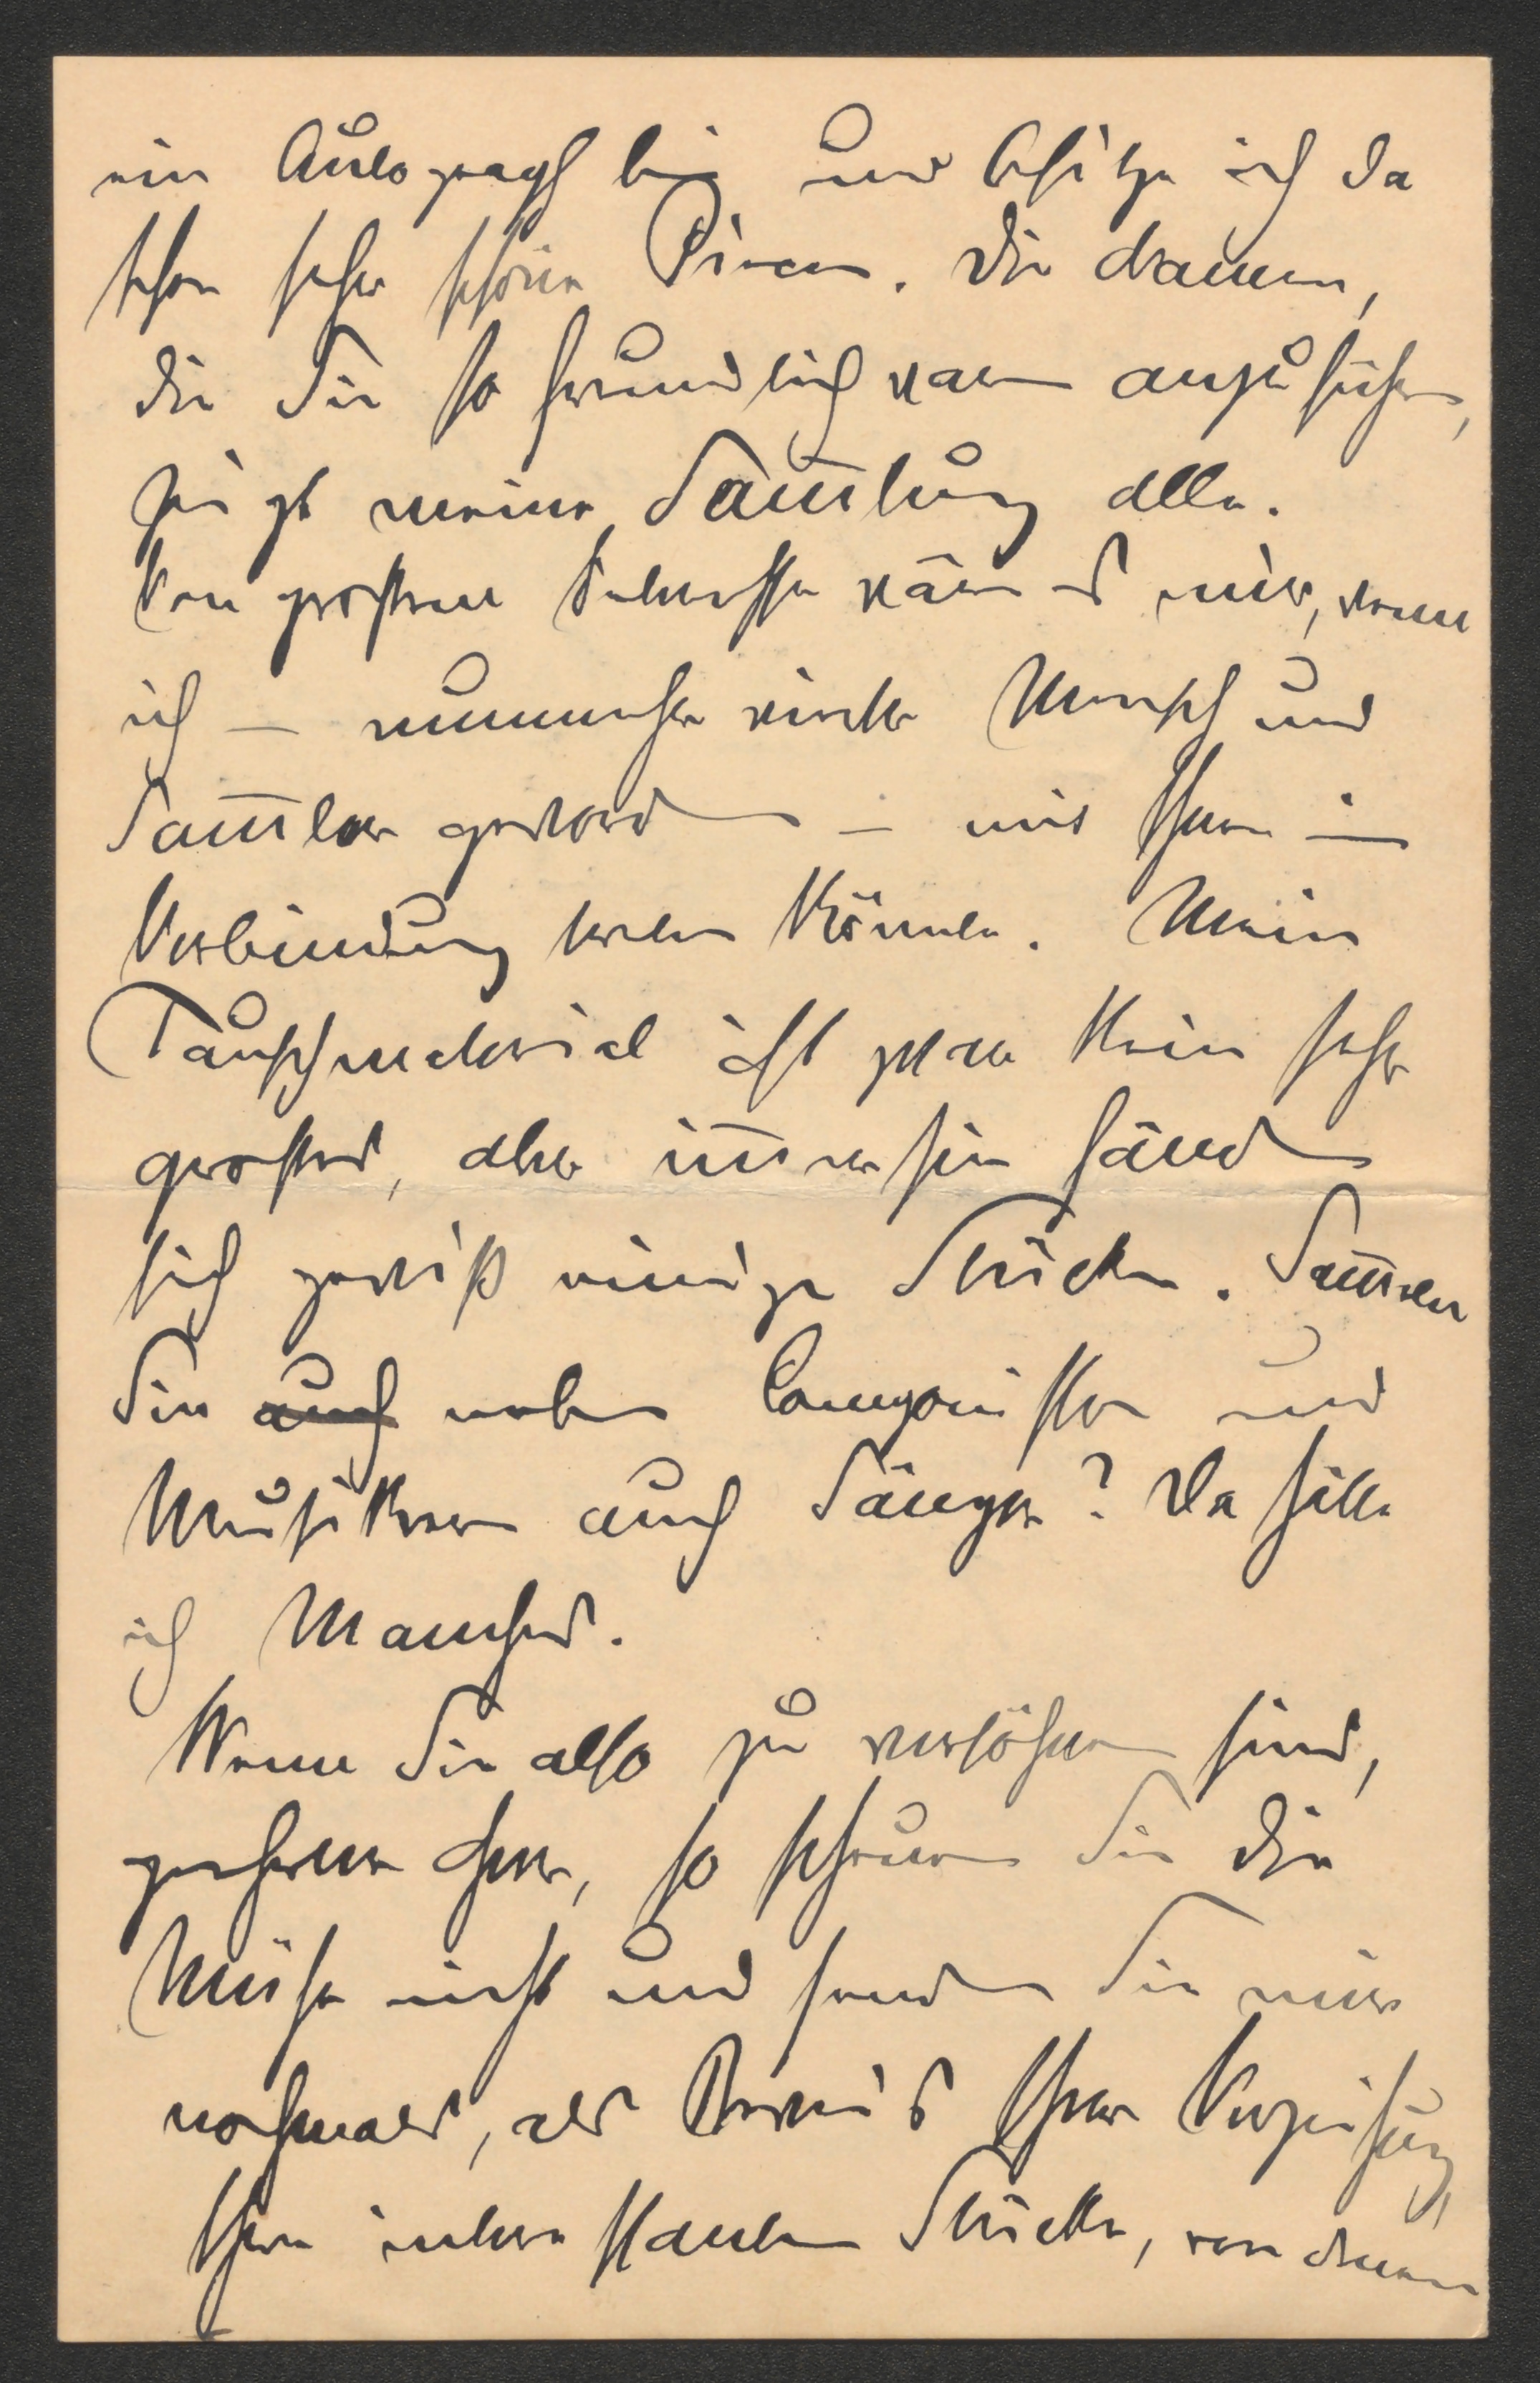 ein Autograph bin und besitze ich da
schon sehr schöne Piecen. Die Namen,
die Sie so freundlich waren anzuführen,
zeigt meine Sam̅lung alle.
Von großem Interesse wäre es mir, wenn
ich – nunmehr wieder Mensch und
Sam̅ler geworden – mit Ihnen in
Verbindung treten könnte. Mein
Tauschmaterial ist zwar kein sehr
großes, aber im̅erhin fänden
sich gewiß einige Stücke. Sam̅eln
Sie auch neben Componisten und
Musikern auch Sänger? Da hätte
ich Manches.
Wenn Sie also zu versöhnen sind,
geehrter Herr, so scheuen Sie die
Mühe nicht und senden Sie mir
nochmals, als Beweis Ihrer Verzeihung,
Ihre interessanten Stücke, von denen